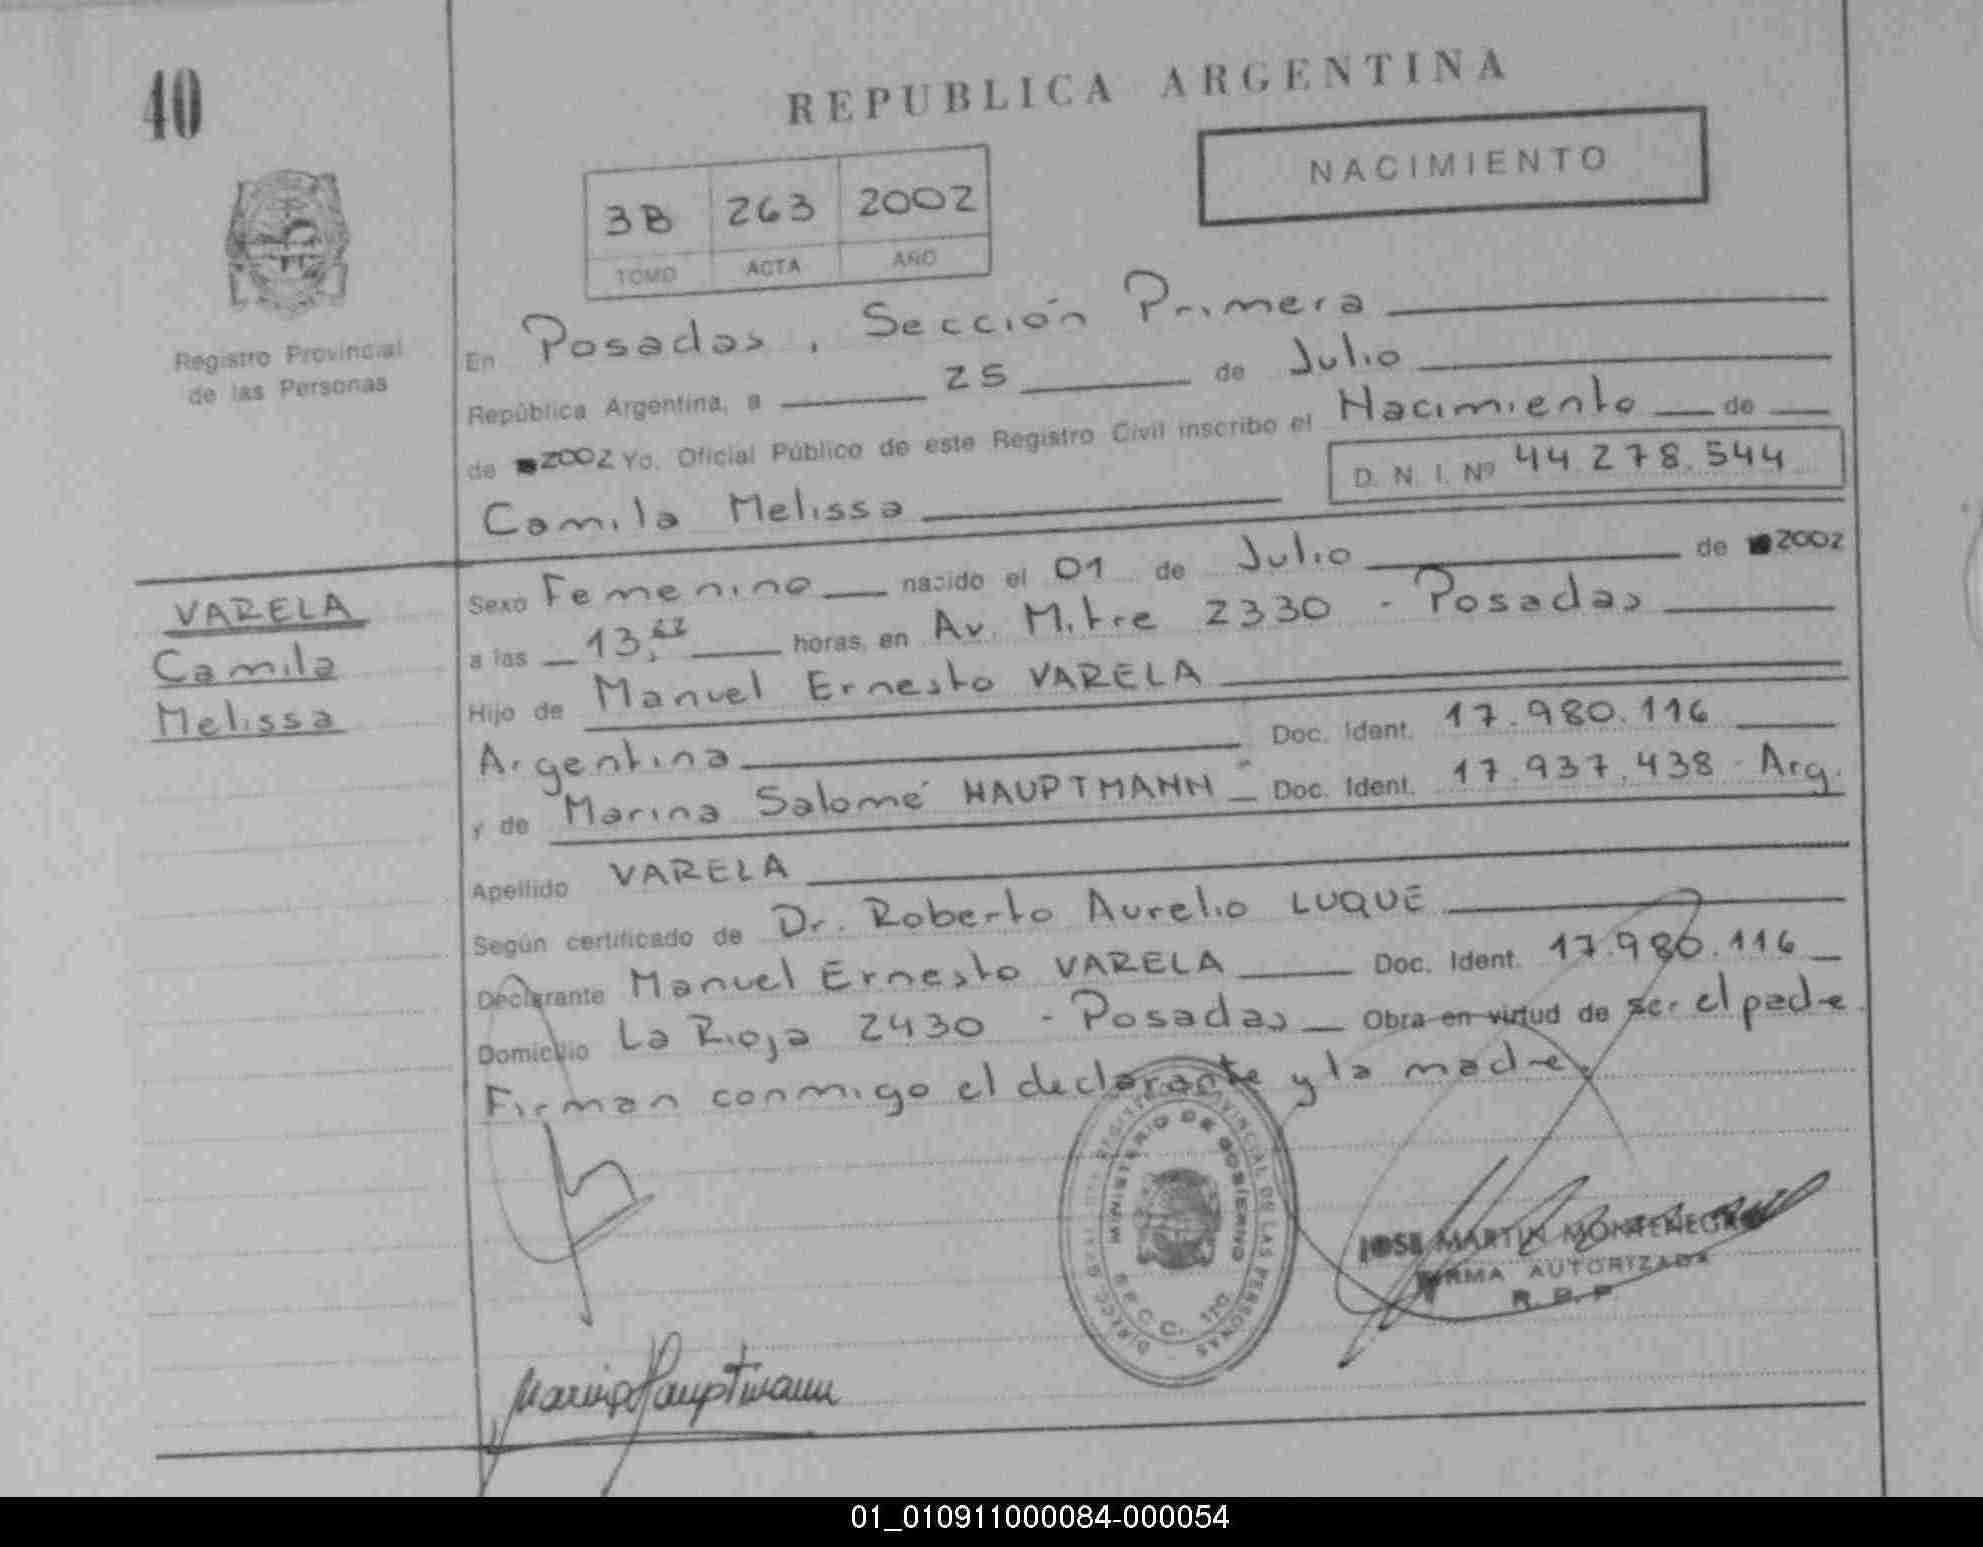 40
REPUBLICA ARGENTINA
NACIMIENTO
3B 263 2002
TOMO ACTA AÑO
Registro Provincial
de las Personas
En Posadas, Sección Primera
República Argentina, a 25 de Julio
de 2002 Yo, Oficial Público de este Registro Civil inscribo el Nacimiento de
D. N. I. Nº 44.278.544
Camila Melissa
VARELA
Camila
Melissa
Sexo Femenino nacido el 01 de Julio de 2002
a las 13, horas, en Av. Mitre 2330 - Posadas
Hijo de Manuel Ernesto VARELA
Argentina Doc. Ident. 17.980.116
y de Marina Salomé HAUPTMANN Doc. Ident. 17.937.438 - Arg.
Apellido VARELA
Según certificado de Dr. Roberto Aurelio LUQUE
Declarante Manuel Ernesto VARELA Doc. Ident. 17.980.116
Domicilio La Rioja 2430 - Posadas Obra en virtud de ser el padre.
Firman conmigo el declarante y la madre.
MINISTERIO DE GOBIERNO
JOSE MARTIN MONTENEGRO
FIRMA AUTORIZADA
R. P. P.
Marina Hauptmann
01_010911000084-000054